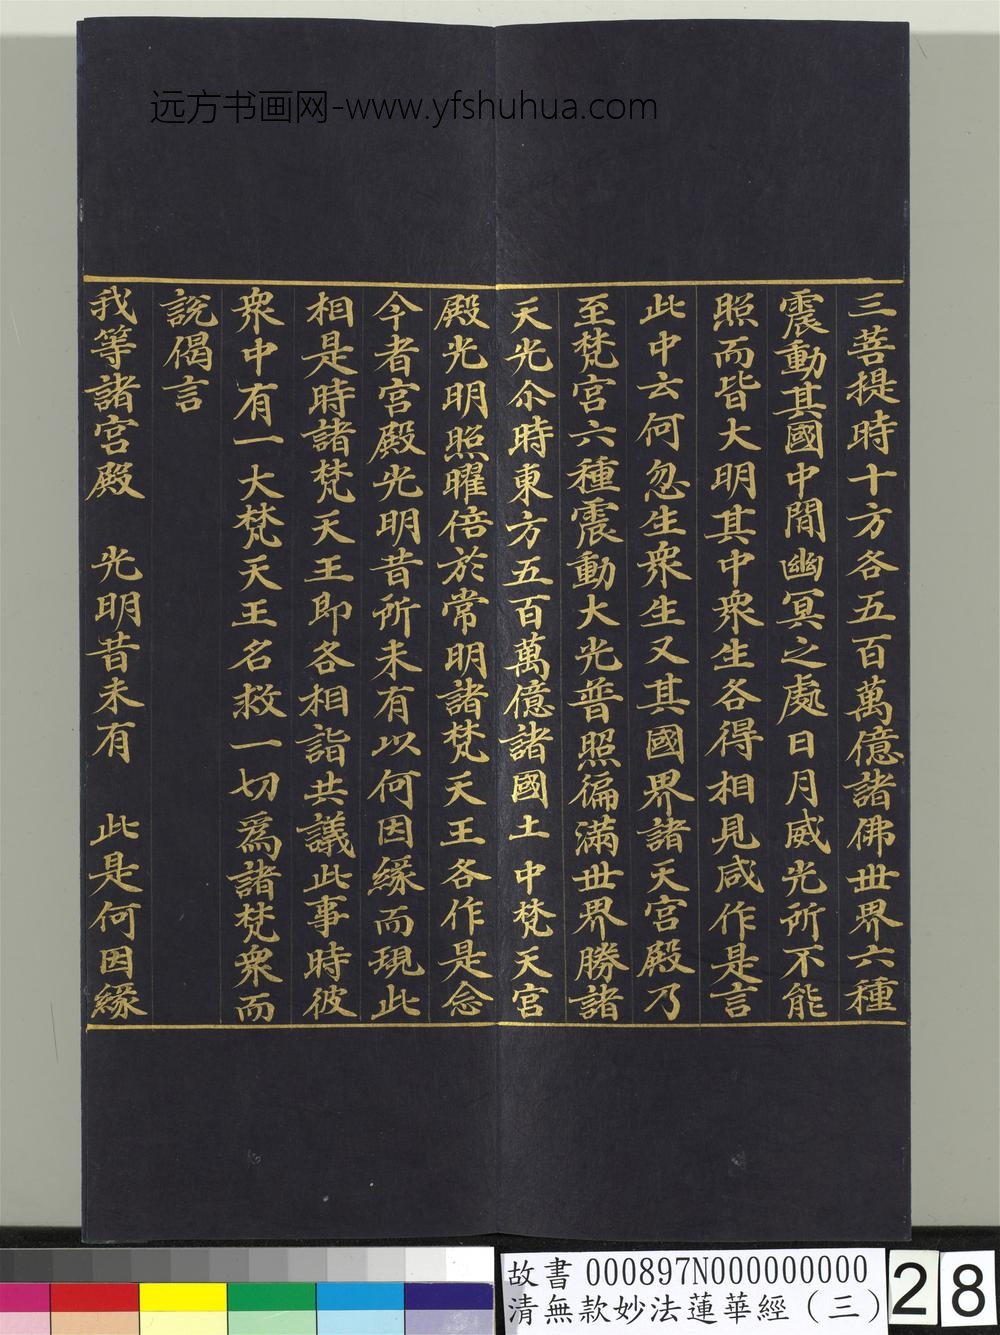 远方书画网-www.yfshuhua.com
三菩提時十方各五百萬億諸佛世界六種
震動其國中間幽冥之處日月威光所不能
照而皆大明其中衆生各得相見咸作是言
此中云何忽生衆生又其國界諸天宮殿乃
至梵宮六種震動大光普照徧滿世界勝諸
天光尒時東方五百萬億諸國土中梵天宮
殿光明照曜倍於常明諸梵天王各作是念
今者宮殿光明昔所未有以何因緣而現此
相是時諸梵天王即各相詣共議此事時彼
衆中有一大梵天王名救一切爲諸梵衆而
說偈言
我等諸宮殿　光明昔未有　此是何因緣
故書 000897N000000000
清無款妙法蓮華經（三）
28